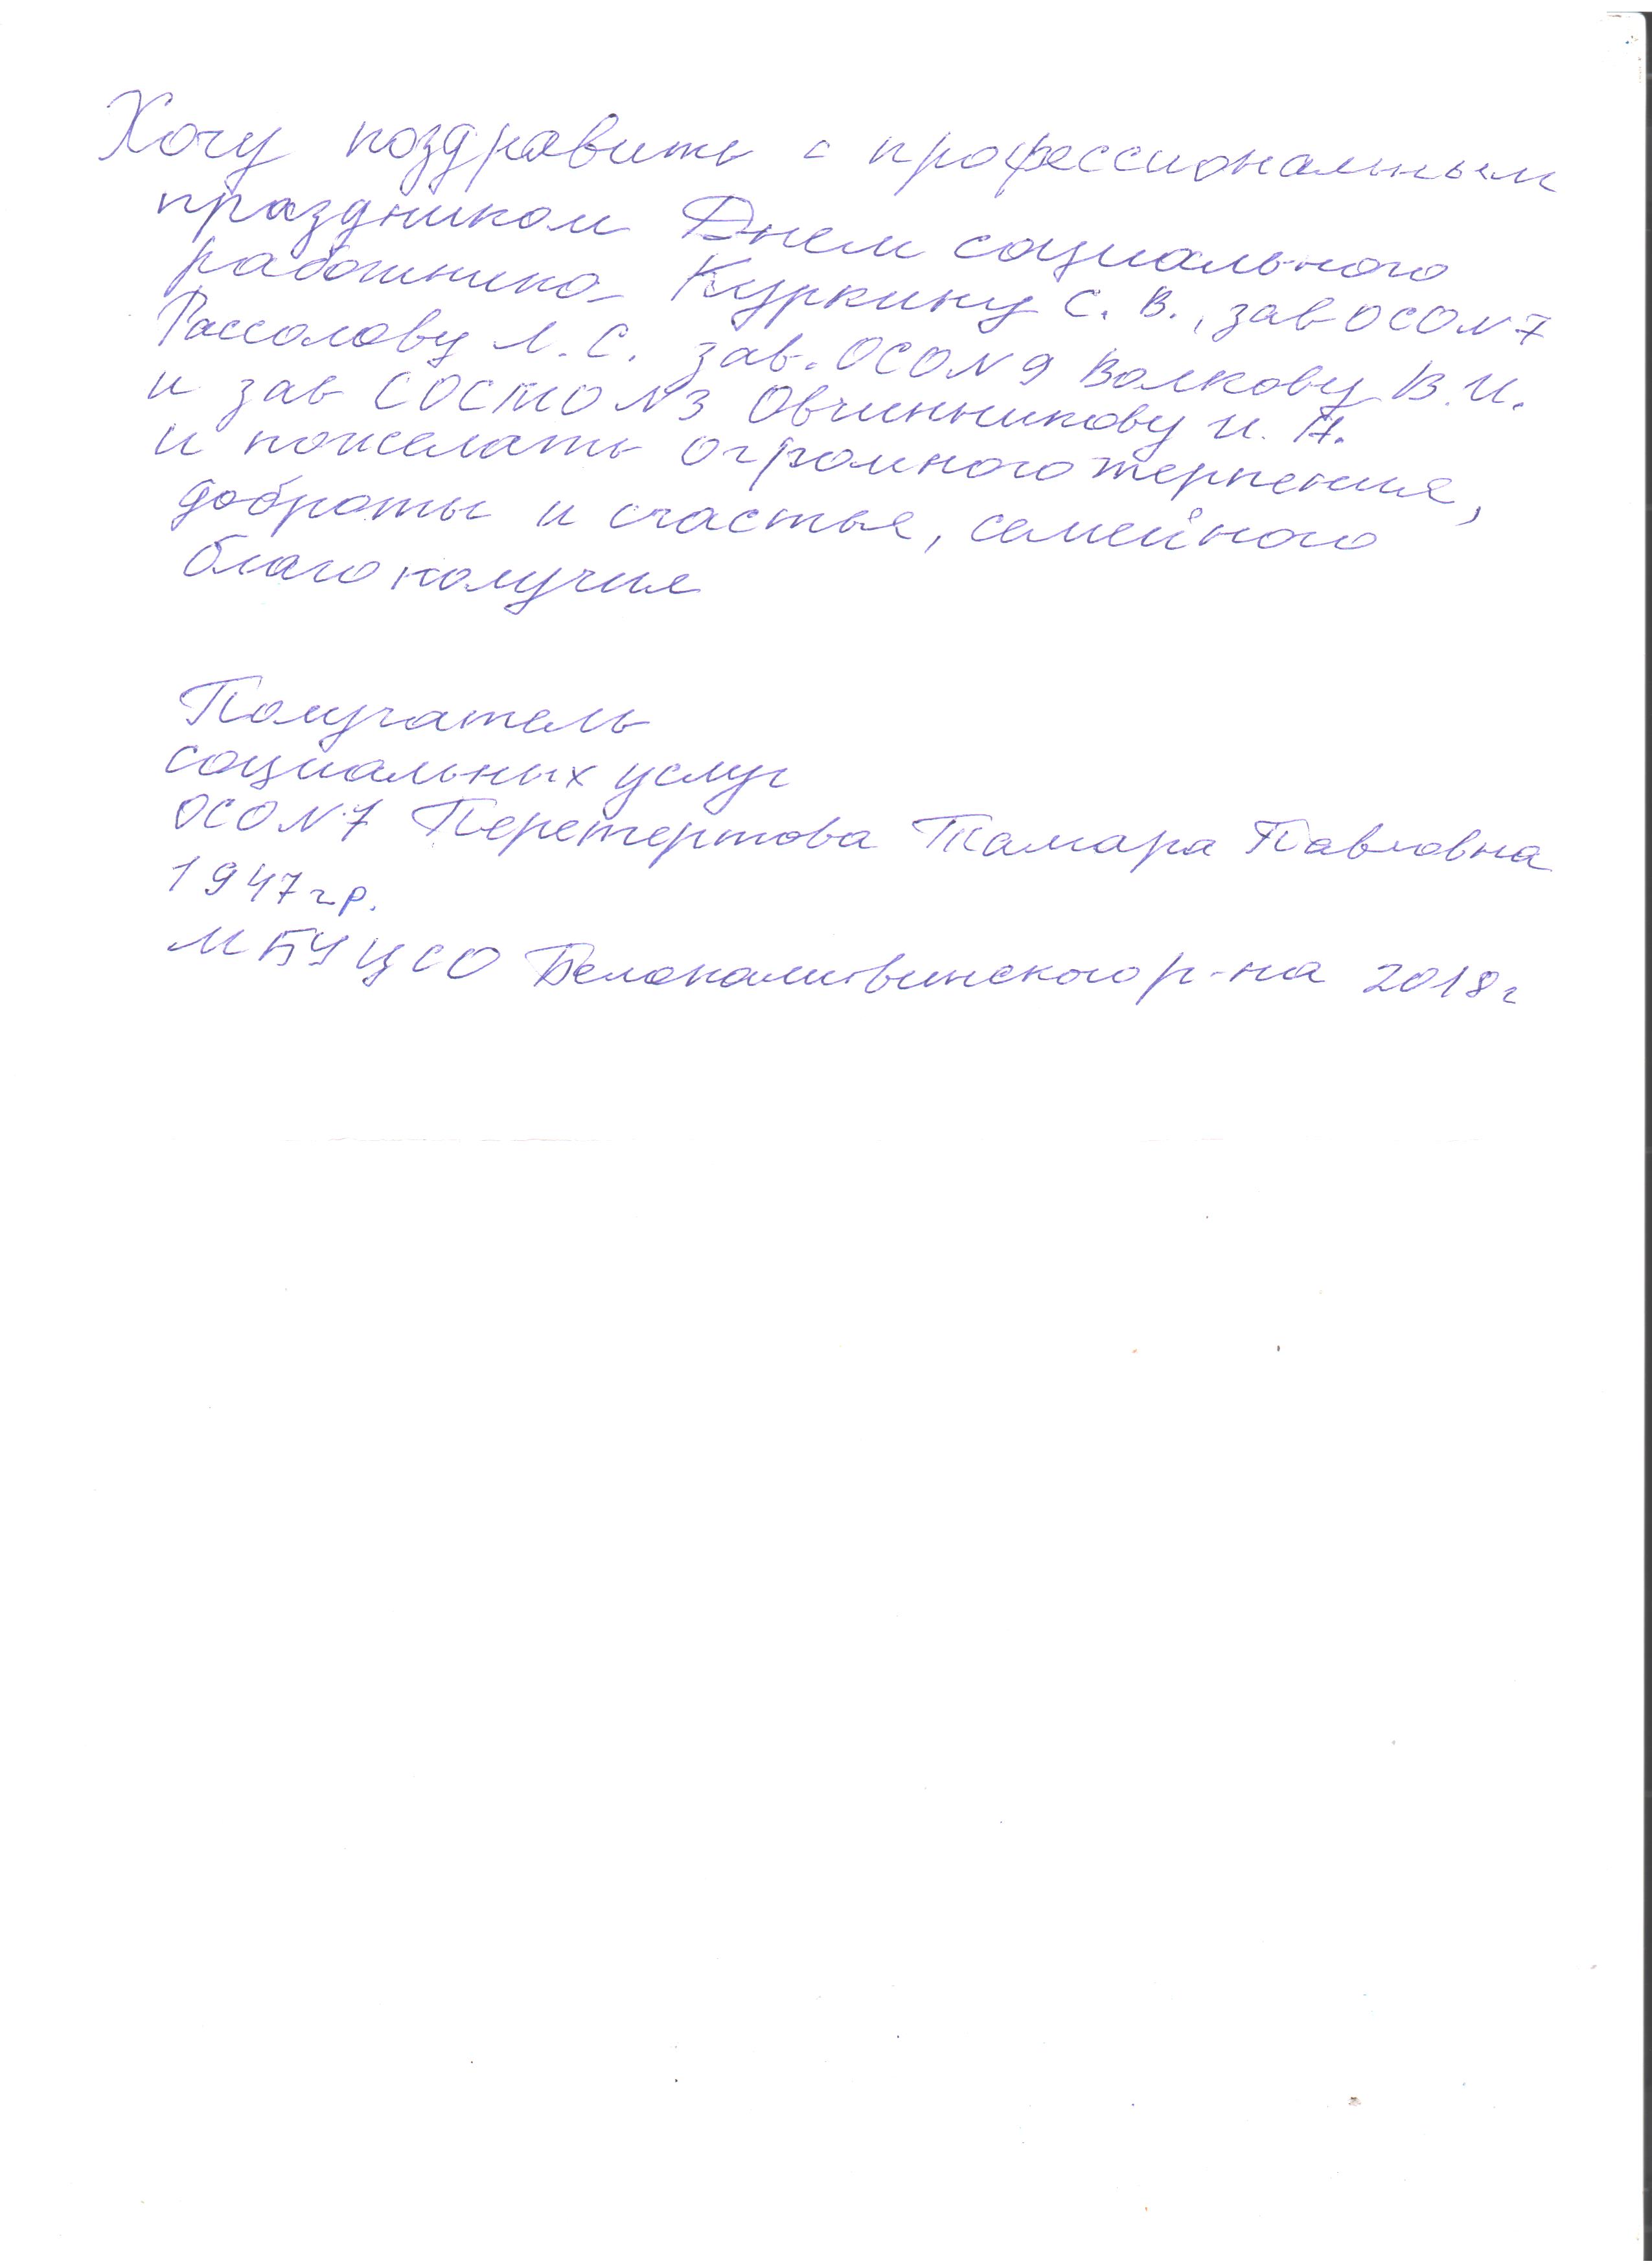 Хочу поздравить с профессиональным
праздником Днем социального
работника Куркину С. В., зав ОСО N 7
Рассолову Л. С. зав. ОСО N 9 Волкову В. И.
и зав СОСМО N 3 Овчинникову И. А.
и пожелать огромного терпения,
доброты и счастья, семейного
благополучия
Получатель
социальных услуг
ОСО N 7 Перетертова Тамара Павловна
1947 г.р.
МБУ ЦСО Белокалитвинского р-на 2018 г